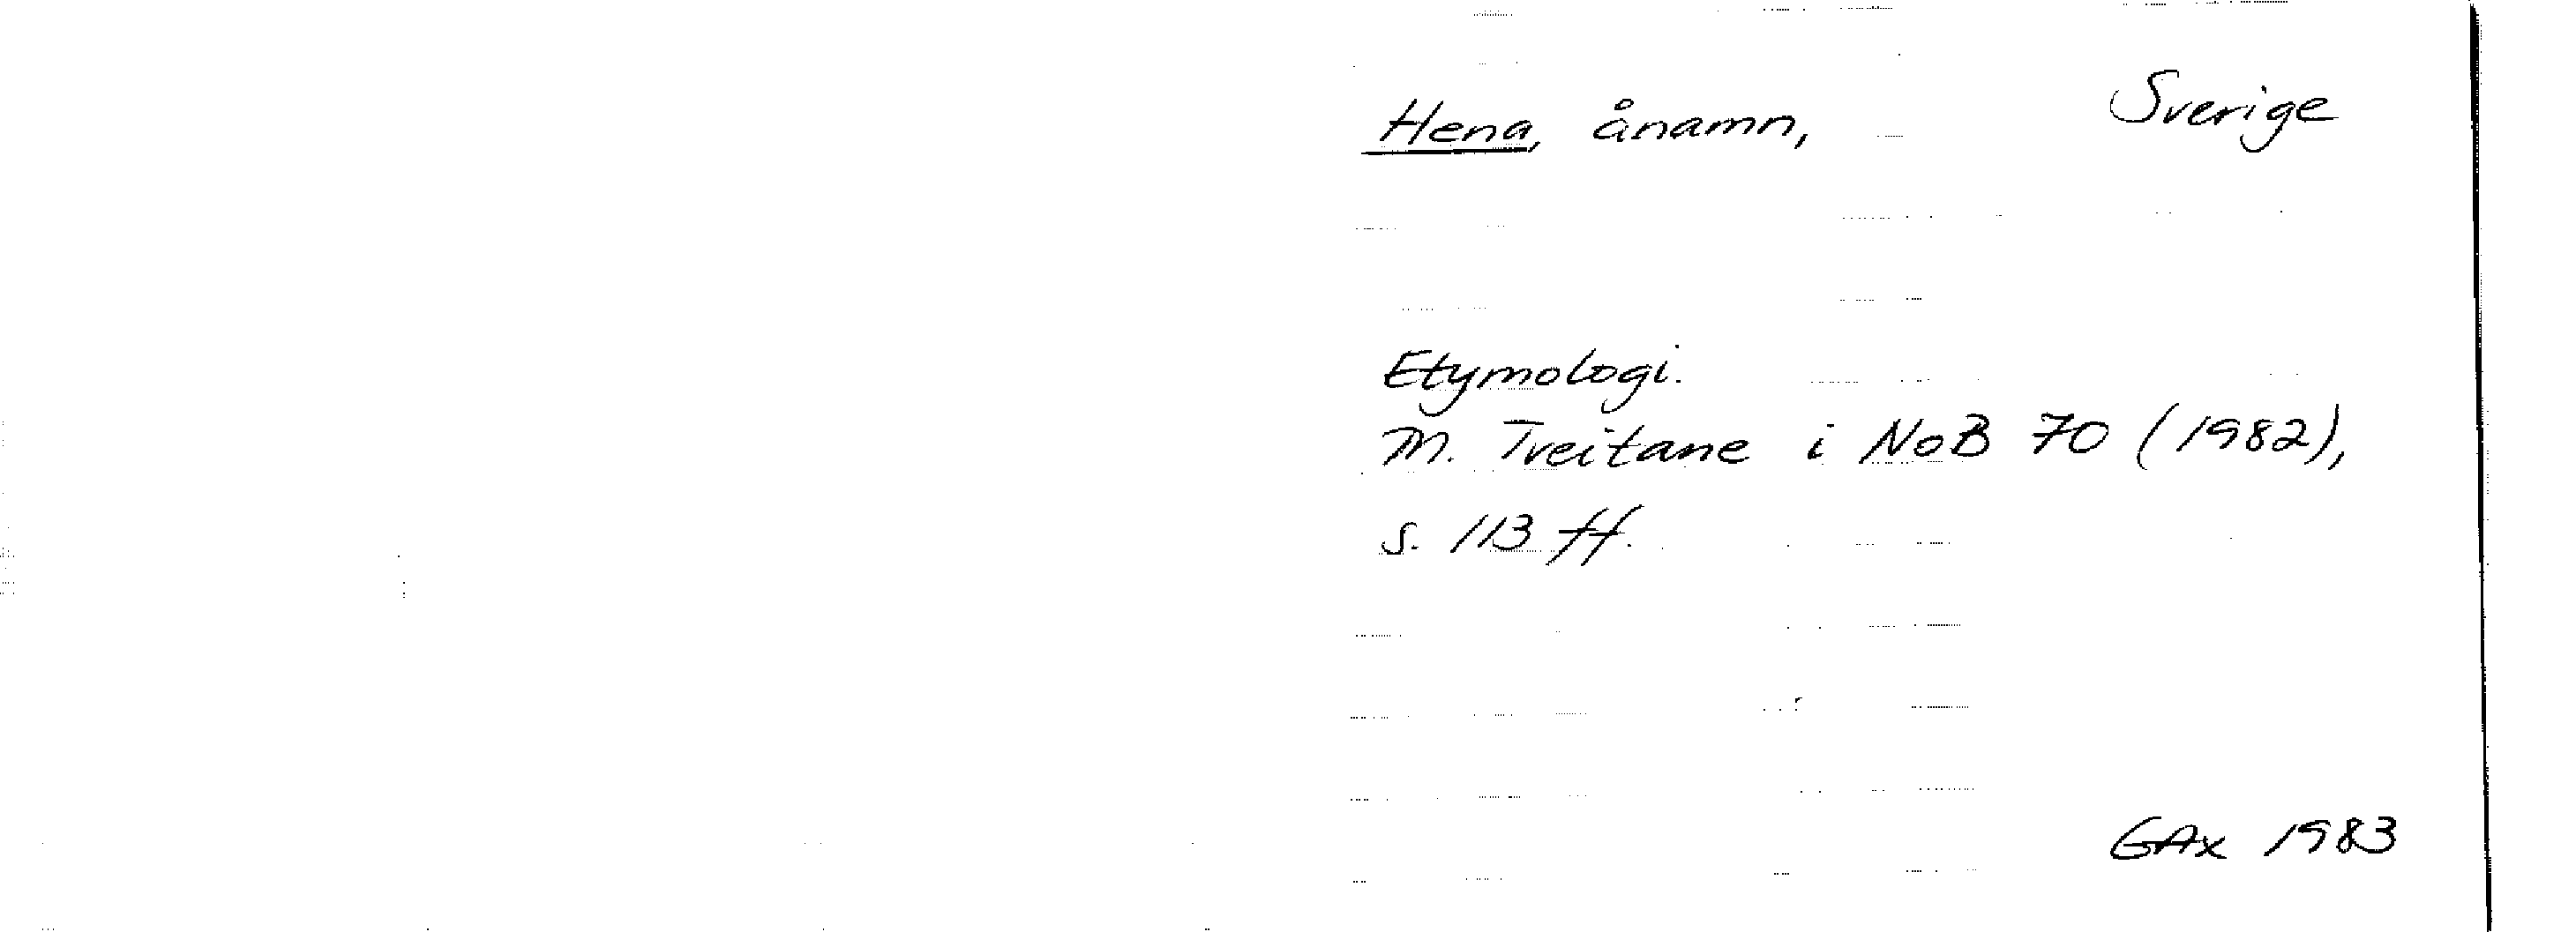 Hena, ånamn, Sverige
Etymologi.
M. Tveitane i NoB 70 (1982),
s. 113 ff.
GAx 1983